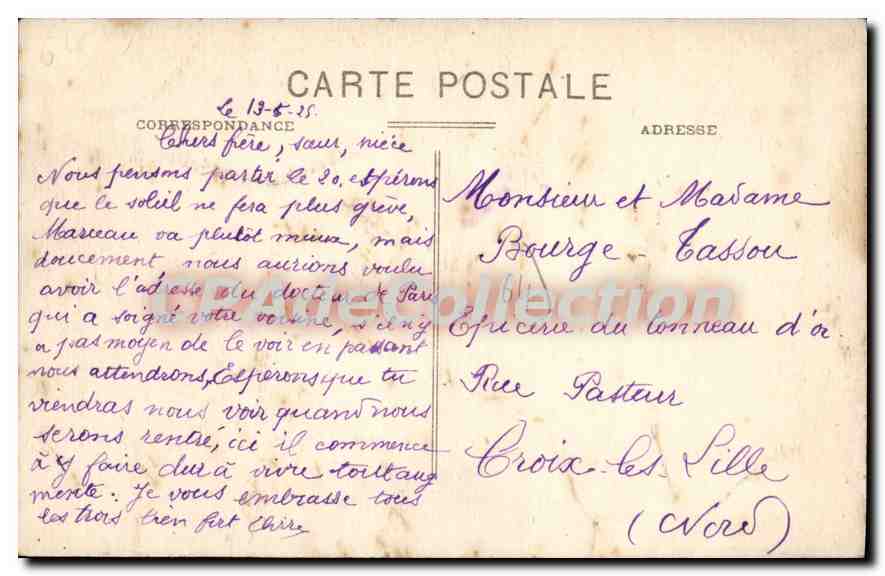 CARTE POSTALE
Le 13-5-25.
CORRESPONDANCE
Chers frère, sœur, nièce
Nous pensons partir le 20. espérons
que le soleil ne fera plus grève,
Marceau va plutôt mieux, mais
doucement, nous aurions voulu
avoir l'adresse du docteur de Paris
qui a soigné votre voisine, s'il n'y
a pas moyen de le voir en passant
nous attendrons, Espérons que tu
viendras nous voir quand nous
serons rentré, ici il commence
à y faire dur à vivre tout aug
mente. Je vous embrasse tous
les trois bien fort
ADRESSE
Monsieur et Madame
Bourge - Tassou
Epicerie du tonneau d'or
Rue Pasteur
Croix-les-Lille
(Nord)
CPArteCollection